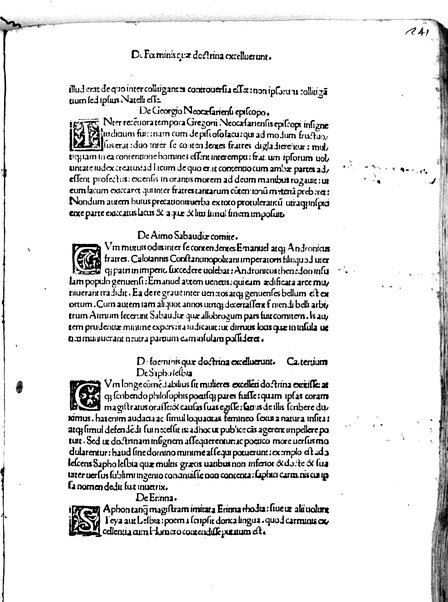 241
De Fœminis quæ doctrina excelluerunt.
illud erat de quo inter colligantes controuersia esset: non ipsarum colligã
tium sed ipsius Natelli esse.
De Georgio Neocæsariensi episcopo.
INter rectiora tempora Gregorii Neocæsariensis episcopi insigne
iudicium fuit: nam cum de piscoso lacu: qui ad modum fructuo
sus erat: duo inter se contendentes fratres
in ea contentione homines essent interempti: erat ipsorum uol
untate iudex creatus ad lacum de quo erat contentio cum ambæ partes ad
essent profectus: enixis in orationes morem ad deum manibus rogauit: ut
eum lacum exsiccaret: qui inter fratres tantarum contentionum materiã preberet:
Nondum autem huius precationis uerba ex toto protulerat: cum utraque inspici
ente parte exsiccatus lacus & aquæ & litis simul finem imposuit.
De Aimo Sabaudiæ comite.
CVm mutuis odiis inter se contenderent Emanuel atque Andronicus
fratres. Caloiannis Constantinopolitani imperatoris filii: quod uter
que patri in imperio succedere uolebat: Andronicus Tenedon insu
lam populo genuensi: Emanuel autem uenetis: qui eam ædificata arce mu
niuerant tradidit. Ea de re graue inter uenetos atque genuenses bellum est ex
ortum. Cum autem iam aliquot annos utrique decertassent finiendi belli arbi
trum Aimum fecerunt Sabaudiæ quæ allobrogum pars fuit comitem. Is au
tem prudentiæ minime expers ita iudicauit: ut dirutis locis quæ in insula ue
neti munierant neutra partium eam insulam possideret.
De fœminis quæ doctrina excelluerunt. Ca. tertium
De Sapho lesbia
CVm longe cõmẽdabilius sit mulieres excellẽti doctrina extitisse: at
que scribendo philosophis poetisque pares fuisse: quam ipsas coram
magistratus orasse: & causas suas egisse: satius de illis scribere du
ximus. has enim audacia ac simul loquacitas femineo sexui a natura insita: ut
atque simul defendẽdi sui necessitas: adhoc ut publice ita agerent impellere po
tuit. Sed ut doctrinam insignem assequerentur: ac poetico more uersus mo
dularentur: haud sine domino minime assequi potuerunt: exemplo est ado
lescens Sapho lesbia quæ multis græcis uatibus non inferior & docte & sua
uiter uersus sublimi ingenio concinnasse non contenta: saphici carminis cui ip
sa nomen dedit fuit inuentrix.
De Erinna.
SAphon tanque magistram imitata Erinna rhodia: siue ut alii uolunt
Teya aut Lesbia: poema scripsit dorica lingua. quod carminis ex
cellentia cum Homero contendisse putatum est.